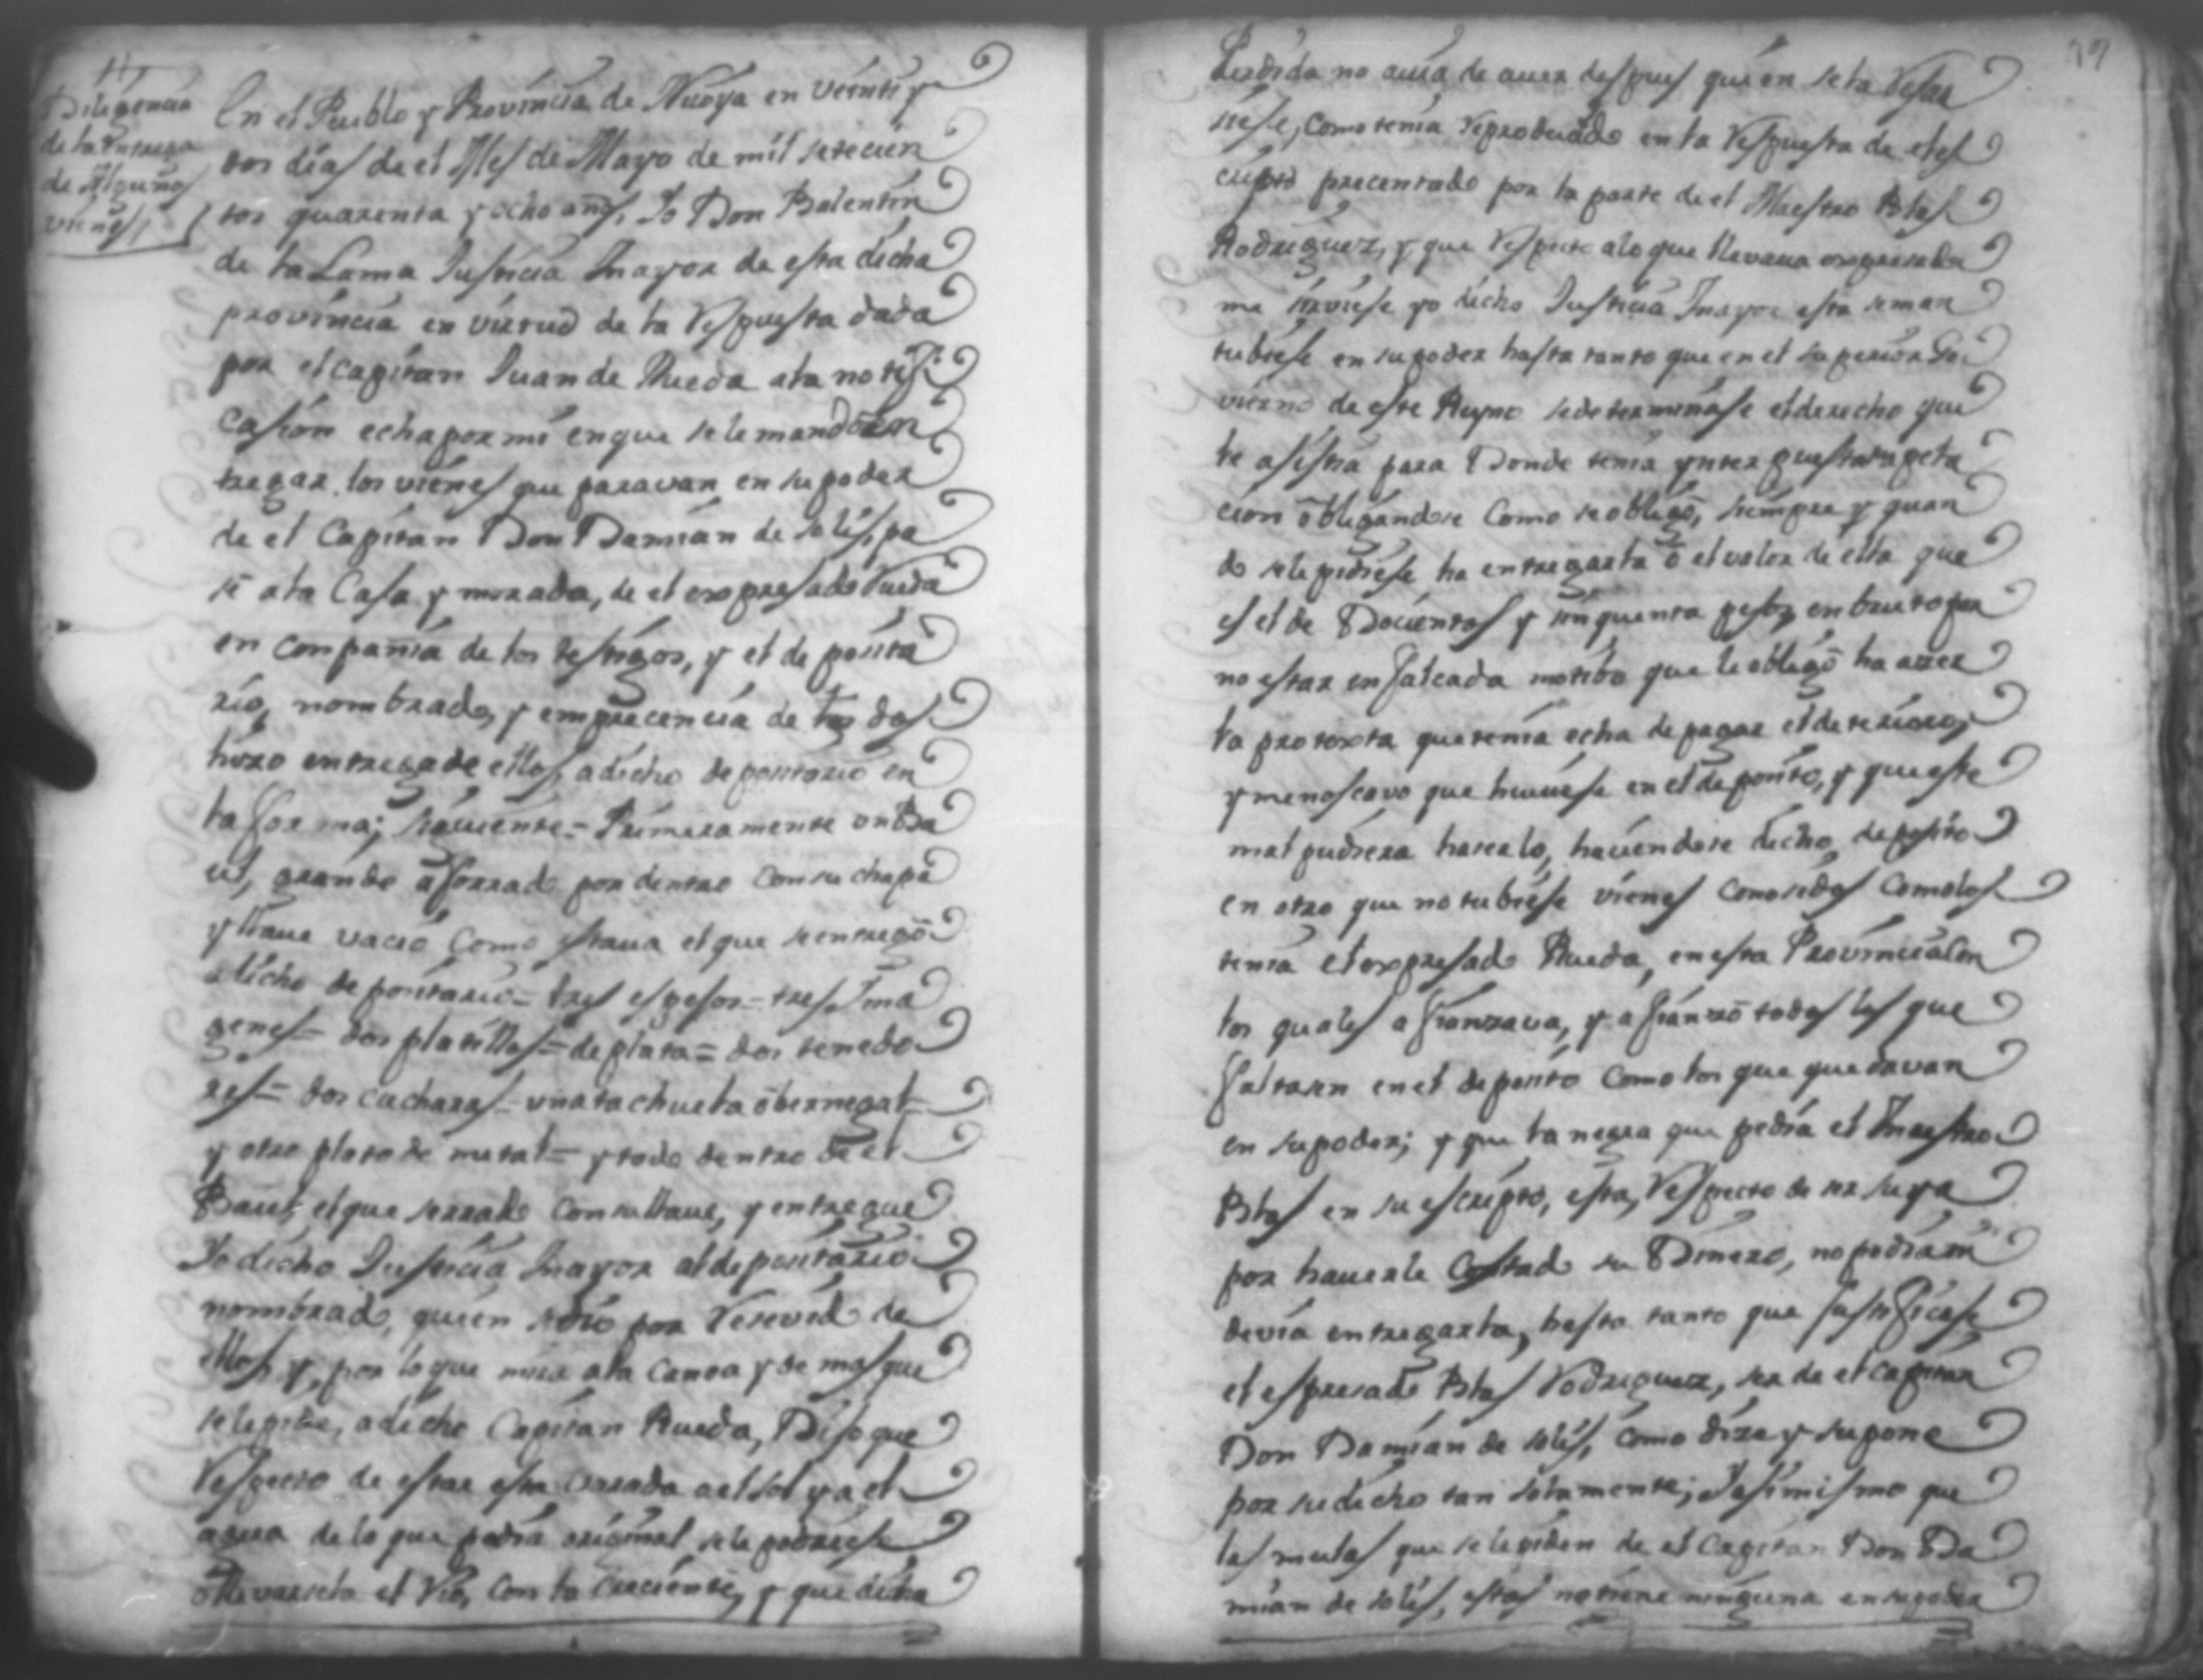 Diligencia
de la Entrega
de Algunos
vienes
En el Pueblo y Provincia de Nuoya en veinte y
dos dias de el Mes de Mayo de mil setecien
tos quarenta y ocho años, Yo Don Balentin
de la Lama Justicia Mayor de esta dicha
provincia en virtud de la Respuesta dada
por el capitan Juan de Rueda a la notifi
casion echa por mi en que se le mandó en
tregar los vienes que paravan en su poder
de el Capitan Don Damian de solis, pa
sé a la Casa y morada, de el expresado Rueda
en compañia de los testigos, y el de posita
rio, nombrado, y em precencia de todos
hizo entrega de ellos, a dicho depositario en
la forma; siguiente = Primeramente un Ba
ul, grande aforrado por dentro con su chapa
y llave vacio como estava el que se entregó
a dicho depositario = tres espesos = tres Yma
genes = dos platillos = de plata = dos tenedo
res = dos cucharas = una tachuela o bernegal =
y otro plato de metal = y todo dentro de el
Baul, el que serrado con su llave, y entregue
Yo dicho Justicia Mayor al depositario
nombrado, quien se dio por Resevido de
ellos, y, por lo que mira a la canoa y de mas que
se le pide, a dicho Capitan Rueda, Dijo que
Respecto de estar esta varada a el sol y a el
agua de lo que podia original se le podriese
o llevarsela el Rio, con la creciente, y que dicha
99
Perdida no avia de aver despues quien se la Resar
siese, como tenia Reproducido en la Respuesta de el es
cripto precentado por la parte de el Maestro Blas
Rodriguez, y que Respecto a lo que llevava expresado
me sirviese yo dicho Justicia Mayor esta se man
tubiese en su poder hasta tanto que en el superior Go
vierno de este Reyno se determinase el derecho que
le asistia para Donde tenia ynterpuesta apela
cion obligandose como se obligó, siempre y quan
do se le pidiese ha entregarla ó el valor de ella que
es el de Docientos y sinquenta pesos, en bruto por
no estar en falcada motibo que le obligó ha aser
la protexta que tenia echa de pagar el deterioro,
y menoscavo que huviese en el deposito, y que este
mal pudiera haserlo, haviendose dicho deposito
en otro que no tubiese vienes conosidos como los
tenia el expresado Rueda, en esta Provincia con
los quales afianzava, y afianzó todos los que
faltasen en el deposito como los que quedavan
en su poder; y que la negra que pedia el Maestro
Blas en su escripto, esta, Respecto de ser suya
por haverle Costado su Dinero, no podia ni
devia entregarla, hasta tanto que justificase
el espresado Blas Rodriguez, ser de el capitan
Don Damian de solis, como dize y supone
por su dicho tan solamente; Y asimismo que
las mulas que se le piden de el Capitan Don Da
mian de solis, estas no tiene ninguna en su poder